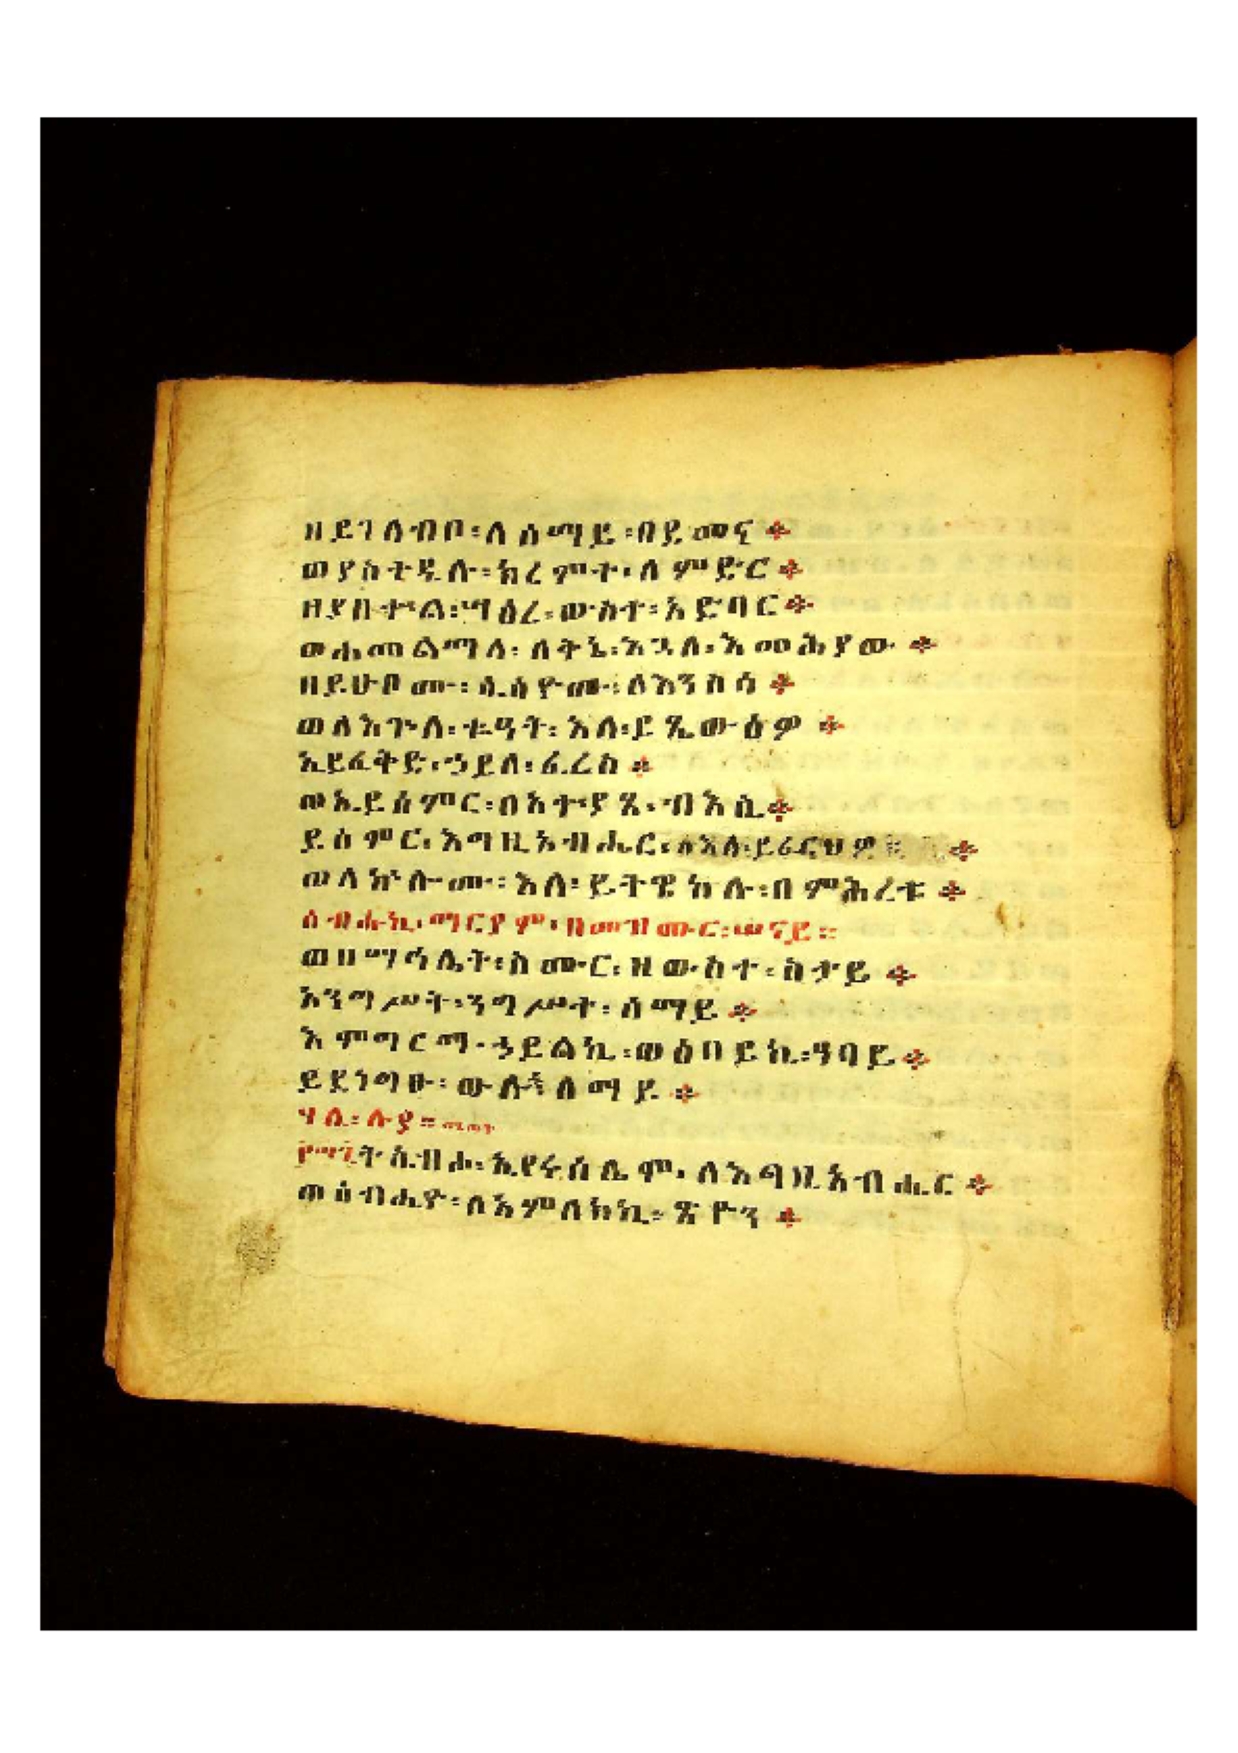 ዘይገለብቦ፡ለሰማይ፡በደመና።
ወያስተዴሉ፡ክረምተ፡ለምድር።
ዘያበቍል፡ሣዕረ፡ውስተ፡አድባር።
ወሐመልማለ፡ለቅኔ፡እጓለ፡እመሕያው።
ዘይሁቦሙ፡ሲሳዮሙ፡ለእንስሳ።
ወለእጕለ፡ቋዓት፡እለ፡ይጼውዕዎ።
ኢይፈቅድ፡ኃይለ፡ፈረስ።
ወኢይሠምር፡በአተያጺ፡ብእሲ።
ይሠምር፡እግዚአብሔር፡ለእለ፡ይፈርህዎ።
ወለኵሎሙ፡እለ፡ይትዌከሉ፡በምሕረቱ።
ሰብሐኪ፡ማርያም፡በመዝሙር፡ሠናይ።
ወበማኅሌት፡ስሙር፡ዘውስተ፡ስታይ።
አንግሥት፡ንግሥተ፡ሰማይ።
እምግርማ፡ኃይልኪ፡ወዕበይኪ፡ዓባይ።
ይደነግፁ፡ውሉደ፡ሰማይ።
ሃሌ፡ሉያ።
ትሴብሖ፡ኢየሩሳሌም፡ለእግዚአብሔር።
ወሰብሒዮ፡ለአምላክኪ፡ጽዮን።